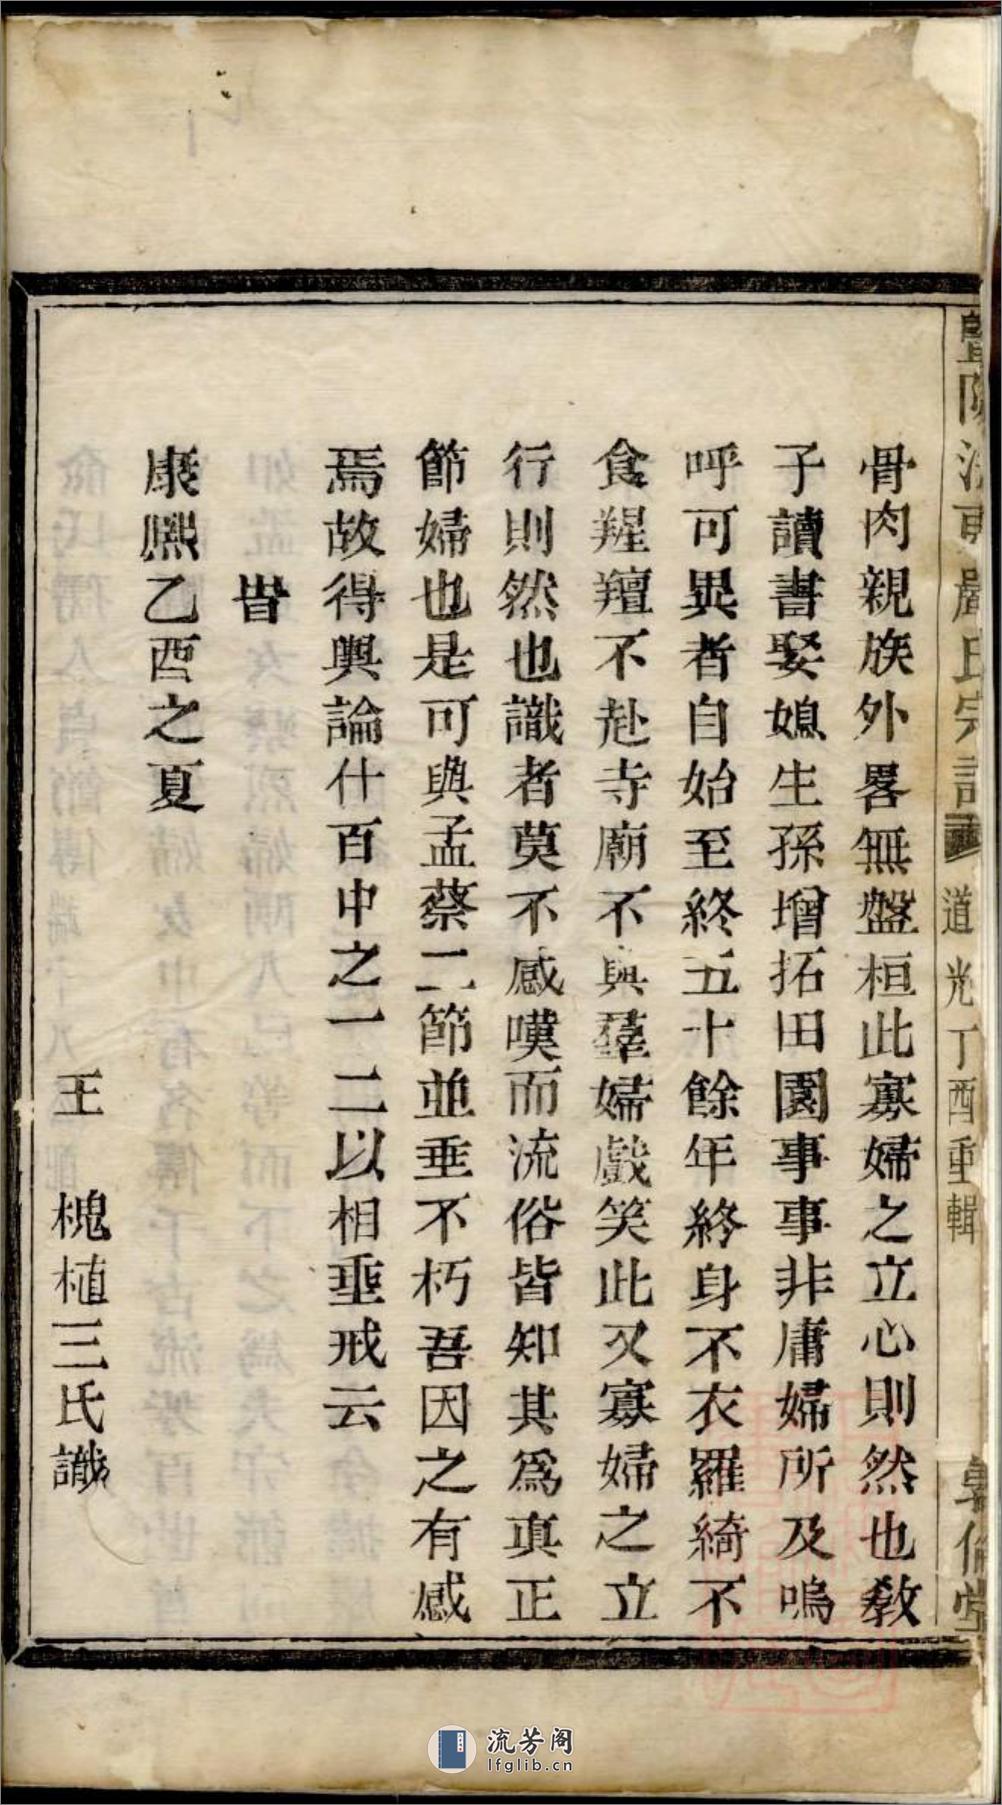 暨陽浣東嚴氏宗譜
道光丁酉重輯
倫堂
骨肉親族外畧無盤桓此寡婦之立心則然也敎
子讀書娶媳生孫增拓田園事事非庸婦所及嗚
呼可異者自始至終五十餘年終身不衣羅綺不
食羶羶不赴寺廟不與羣婦戲笑此又寡婦之立
行則然也識者莫不感嘆而流俗皆知其爲真正
節婦也是可與孟蔡二節並垂不朽吾因之有感
焉故得輿論什百中之一二以相垂戒云
旹
康熙乙酉之夏
王 槐植三氏識
流芳阁
lfglib.cn